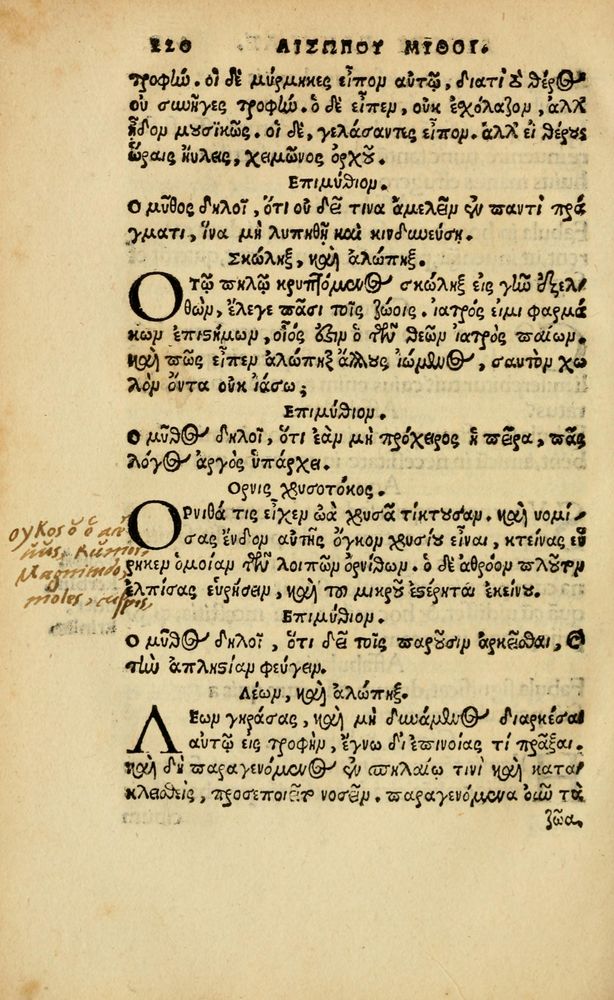 220 ΑΙΣΩΠΟΥ ΜΥΘΟΙ.
τροφήν. οἱ δὲ μύρμηκες εἶπον αὐτῷ, διατί τὸ θέρος
οὐ συνῆγες τροφήν. ὁ δὲ εἶπεν, οὐκ ἐσχόλαζον, ἀλλ'
ᾖδον μουσικῶς. οἱ δὲ, γελάσαντες εἶπον. ἀλλ' εἰ θέρους
ὥραις ηὔλεις, χειμῶνος ὀρχοῦ.
Επιμύθιον.
Ο μῦθος δηλοῖ, ὅτι οὐ δεῖ τινα ἀμελεῖν ἐν παντὶ πρά
γματι, ἵνα μὴ λυπηθῇ καὶ κινδυνεύσῃ.
Σκώληξ, καὶ ἀλώπηξ.
Ο Τῷ πηλῷ κρυπτόμενος σκώληξ εἰς γῆν ἐξελ
θὼν, ἔλεγε πᾶσι τοῖς ζώοις. ἰατρός εἰμι φαρμά
κων ἐπιστήμων, οἷός ἐστιν ὁ τῶν θεῶν ἰατρὸς παίων.
καὶ πῶς εἶπεν ἀλώπηξ ἄλλους ἰώμενος, σαυτὸν χω
λὸν ὄντα οὐκ ἰάσω;
Επιμύθιον.
Ο μῦθος δηλοῖ, ὅτι ἐὰν μὴ πρόχειρος ἡ πεῖρα, πᾶς
λόγος ἀργὸς ὑπάρχει.
Ορνις χρυσοτόκος.
ΟΡνιθά τις εἶχεν ὠὰ χρυσᾶ τίκτουσαν. καὶ νομί
σας ἔνδον αὐτῆς ὄγκον χρυσίου εἶναι, κτείνας εὕ
ρηκεν ὁμοίαν τῶν λοιπῶν ὀρνίθων. ὁ δὲ ἀθρόον πλοῦτον
ἐλπίσας εὑρήσειν, καὶ τοῦ μικροῦ ἐστέρηται ἐκείνου.
Επιμύθιον.
Ο μῦθος δηλοῖ, ὅτι δεῖ τοῖς παροῦσιν ἀρκεῖσθαι, καὶ
τὴν ἀπληστίαν φεύγειν.
Λέων, καὶ ἀλώπηξ.
ΛΕων γηράσας, καὶ μὴ δυνάμενος διαρκέσαι
αὐτῷ εἰς τροφὴν, ἔγνω δι' ἐπινοίας τί πρᾶξαι.
καὶ δὴ παραγενόμενος ἐν σπηλαίῳ τινὶ καὶ κατα
κλειθεὶς, προσεποιεῖτο νοσεῖν. παραγενόμενα οὖν τὰ
ζῶα,
Magnitudo,
moles,